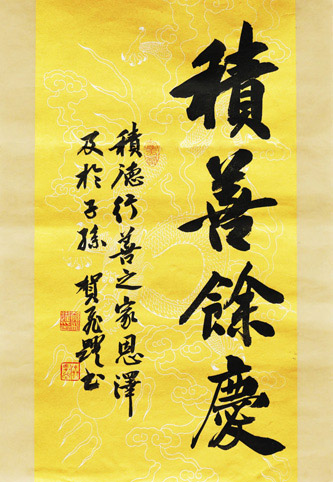 積善餘慶
積德行善之家恩澤
及於子孫 賀飛躍書